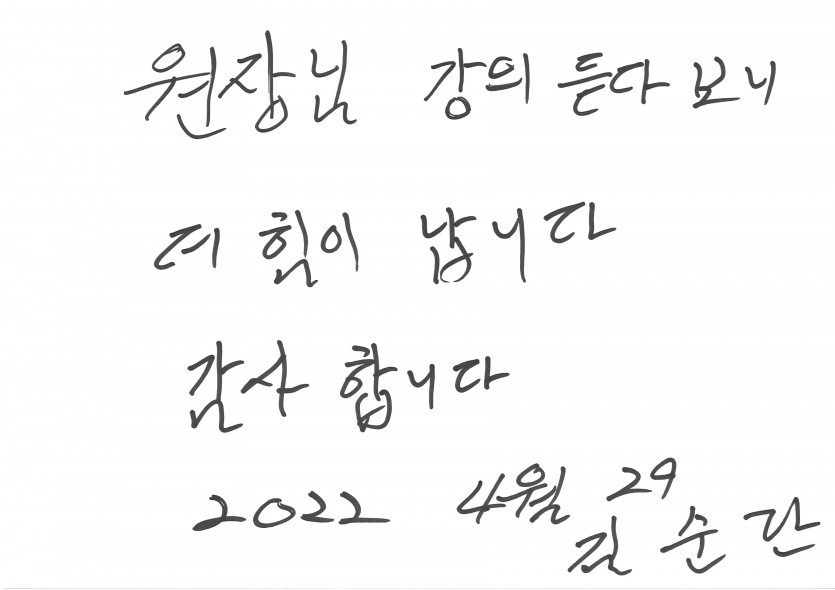 원장님 강의 듣다 보니
더 힘이 납니다
감사 합니다
2022 4월 29
김 순 단